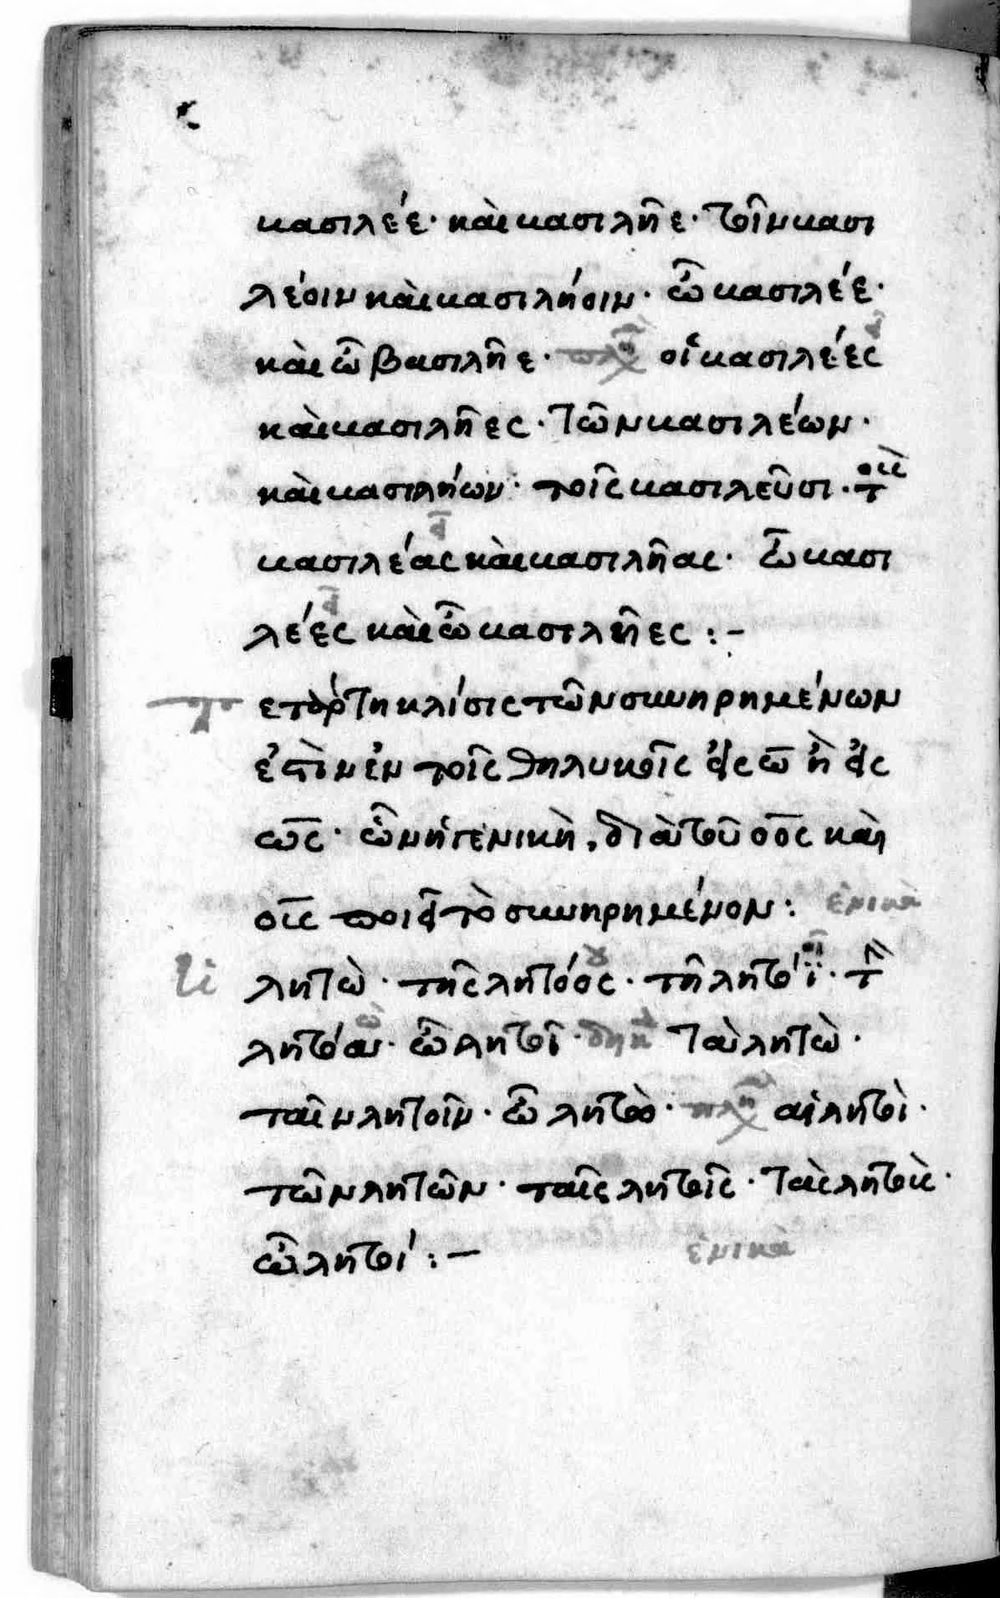 βασιλέε· καὶ βασιλῆε· τοῖν βασι
λέοιν καὶ βασιλήοιν· ὦ βασιλέε·
καὶ ὦ βασιλῆε· πλη οἱ βασιλέες
καὶ βασιλῆες· τῶν βασιλέων·
καὶ βασιλήων· τοῖς βασιλεῦσι· τοὺς
βασιλέας καὶ βασιλῆας· ὦ βασι
λέες καὶ ὦ βασιλῆες :–
ετάρτη κλίσις τῶν συνηρημένων
ἐστὶν ἐν τοῖς θηλυκοῖς εἰς ω ἢ εἰς
ως· ὧν ἡ γενικὴ, διὰ τοῦ οος καὶ
ους ποιεῖ τὸ συνηρημένον : ἑνικὰ
λητὼ· τῆς λητόος· τῇ λητόϊ· τὴν
λητόα· ὦ λητοῖ· δηκ τὰ λητὼ·
ταῖν λητοῖν· ὦ λητὼ· πλη αἱ λητοὶ·
τῶν λητῶν· ταῖς λητοῖς· τὰς λητοὺς·
ὦ λητοί :–
ἑνικὰ